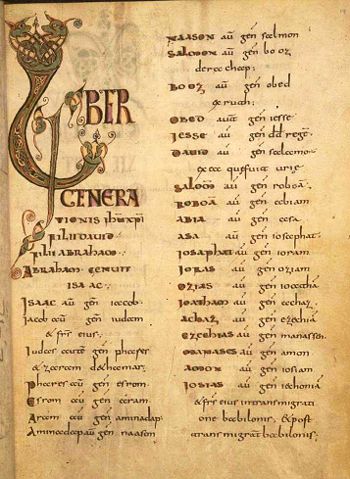 LIBER
GENERA
TIONIS IHU XPI
FILII DAUID
FILII ABRAHAM
ABRAHAM GENUIT
ISAAC
ISAAC aū gēn iacob
Iacob aū gēn iudam
& frs eius;
Iudas aut gēn phares
& zaram dethamar;
Phares aū gēn esrom
Esrom aū gēn aram
Aram aū gēn aminadap
Aminadap aū gēn naason
NAASON aū gēn salmon
SALMON aū gēn booz
derachap;
BOOZ aū gēn obed
exruth;
OBED aut gēn iesse
IESSE aū gēn dd regē
DAUID aū gēn salamo
exea quefuit urie
SALOM aū gēn roboā
ROBOĀ aū gēn abiam
ABIA aū gēn asa
ASA aū gēn iosaphat
IOSAPHAT aū gēn ioram
IORAS aū gēn oziam
OZIAS aū gēn ioatha
IOATHAM aū gēn achaz
ACHAZ aū gēn ezechia
EZECHIAS aū gēn manassen
MANASSES aū gēn amon
AMON aū gēn iosiam
IOSIAS aū gēn iechonia
& frs eius intransmigrati
one babilonis; & post
transmigrat babilonis;